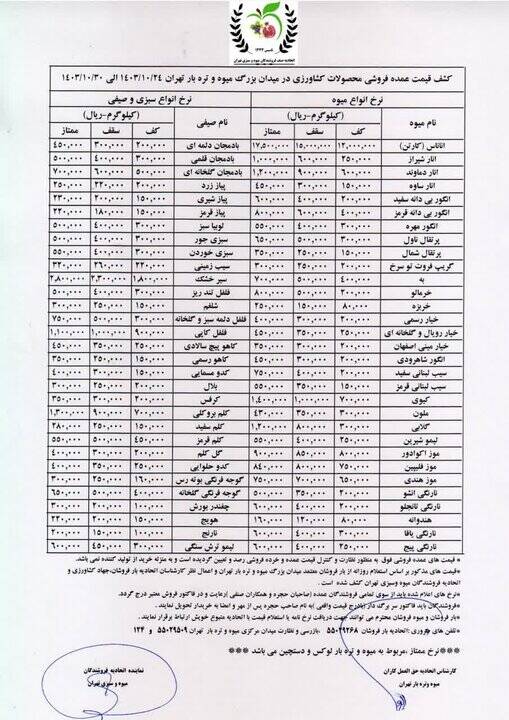 تاسیس ۱۳۴۳
اتحادیه صنف فروشندگان میوه و سبزی تهران
کشف قیمت عمده فروشی محصولات کشاورزی در میدان بزرگ میوه و تره بار تهران ۱۴۰۳/۱۰/۲۴ الی ۱۴۰۳/۱۰/۳۰
نرخ انواع میوه نرخ انواع سبزی و صیفی
نام میوه (کیلوگرم-ریال) نام صیفی (کیلوگرم-ریال)
کف سقف ممتاز کف سقف ممتاز
اناناس (کارتن) ۱۲,۰۰۰,۰۰۰ ۱۵,۰۰۰,۰۰۰ ۱۷,۵۰۰,۰۰۰ بادمجان دلمه ای ۲۰۰,۰۰۰ ۳۰۰,۰۰۰ ۴۵۰,۰۰۰
انار شیراز ۲۵۰,۰۰۰ ۶۰۰,۰۰۰ ۱,۰۰۰,۰۰۰ بادمجان قلمی ۳۰۰,۰۰۰ ۴۰۰,۰۰۰ ۵۰۰,۰۰۰
انار دماوند ۶۰۰,۰۰۰ ۹۰۰,۰۰۰ ۱,۲۰۰,۰۰۰ بادمجان گلخانه ای ۵۰۰,۰۰۰ ۶۰۰,۰۰۰ ۷۰۰,۰۰۰
انار ساوه ۱۵۰,۰۰۰ ۳۰۰,۰۰۰ ۴۵۰,۰۰۰ پیاز زرد ۲۰۰,۰۰۰ ۲۲۰,۰۰۰ ۲۵۰,۰۰۰
انگور بی دانه سفید ۲۰۰,۰۰۰ ۴۰۰,۰۰۰ ۶۰۰,۰۰۰ پیاز شیری ۱۵۰,۰۰۰ ۲۰۰,۰۰۰ ۲۳۰,۰۰۰
انگور بی دانه قرمز ۴۰۰,۰۰۰ ۶۰۰,۰۰۰ ۸۰۰,۰۰۰ پیاز قرمز ۱۵۰,۰۰۰ ۱۸۰,۰۰۰ ۲۲۰,۰۰۰
انگور مهره ۳۰۰,۰۰۰ ۴۰۰,۰۰۰ ۵۵۰,۰۰۰ لوبیا سبز ۳۰۰,۰۰۰ ۴۰۰,۰۰۰ ۵۰۰,۰۰۰
پرتقال ناول ۳۰۰,۰۰۰ ۵۰۰,۰۰۰ ۶۵۰,۰۰۰ سبزی جور ۳۰۰,۰۰۰ ۴۰۰,۰۰۰ ۵۵۰,۰۰۰
پرتقال شمال ۱۵۰,۰۰۰ ۲۵۰,۰۰۰ ۳۵۰,۰۰۰ سبزی خوردن ۳۰۰,۰۰۰ ۴۰۰,۰۰۰ ۵۵۰,۰۰۰
گریپ فروت تو سرخ ۲۰۰,۰۰۰ ۲۵۰,۰۰۰ ۳۰۰,۰۰۰ سیب زمینی ۲۲۰,۰۰۰ ۲۶۰,۰۰۰ ۳۲۰,۰۰۰
به ۴۰۰,۰۰۰ ۵۰۰,۰۰۰ ۷۰۰,۰۰۰ سیر خشک ۱,۸۰۰,۰۰۰ ۲,۳۰۰,۰۰۰ ۲,۸۰۰,۰۰۰
خرمالو ۲۰۰,۰۰۰ ۵۰۰,۰۰۰ ۸۰۰,۰۰۰ فلفل تند ریز ۳۰۰,۰۰۰ ۴۰۰,۰۰۰ ۵۰۰,۰۰۰
خربزه ۸۰,۰۰۰ ۱۵۰,۰۰۰ ۲۵۰,۰۰۰ شلغم ۱۵۰,۰۰۰ ۲۵۰,۰۰۰ ۳۰۰,۰۰۰
خیار رسمی ۲۰۰,۰۰۰ ۳۰۰,۰۰۰ ۴۵۰,۰۰۰ فلفل دلمه سبز و گلخانه ۳۰۰,۰۰۰ ۵۰۰,۰۰۰ ۷۵۰,۰۰۰
خیار رویال و گلخانه ای ۲۵۰,۰۰۰ ۳۵۰,۰۰۰ ۴۵۰,۰۰۰ فلفل کاپی ۹۰۰,۰۰۰ ۱,۰۰۰,۰۰۰ ۱,۱۰۰,۰۰۰
خیار مینی اصفهان ۲۰۰,۰۰۰ ۳۰۰,۰۰۰ ۴۰۰,۰۰۰ کاهو پیچ سالادی ۲۵۰,۰۰۰ ۳۵۰,۰۰۰ ۴۵۰,۰۰۰
انگور شاهرودی ۲۵۰,۰۰۰ ۳۰۰,۰۰۰ ۴۰۰,۰۰۰ کاهو رسمی ۱۵۰,۰۰۰ ۲۵۰,۰۰۰ ۳۵۰,۰۰۰
سیب لبنانی سفید ۲۰۰,۰۰۰ ۴۰۰,۰۰۰ ۷۵۰,۰۰۰ کدو مسمایی ۲۰۰,۰۰۰ ۳۰۰,۰۰۰ ۴۰۰,۰۰۰
سیب لبنانی قرمز ۱۵۰,۰۰۰ ۳۵۰,۰۰۰ ۵۵۰,۰۰۰ بلال ۲۰۰,۰۰۰ ۲۵۰,۰۰۰ ۳۰۰,۰۰۰
کیوی ۷۰۰,۰۰۰ ۱,۰۰۰,۰۰۰ ۱,۴۰۰,۰۰۰ کرفس ۲۰۰,۰۰۰ ۳۰۰,۰۰۰ ۳۵۰,۰۰۰
ملون ۳۰۰,۰۰۰ ۳۵۰,۰۰۰ ۴۳۰,۰۰۰ کلم بروکلی ۷۰۰,۰۰۰ ۹۰۰,۰۰۰ ۱,۳۰۰,۰۰۰
گلابی ۳۰۰,۰۰۰ ۸۰۰,۰۰۰ ۱,۲۰۰,۰۰۰ کلم سفید ۱۵۰,۰۰۰ ۲۵۰,۰۰۰ ۲۸۰,۰۰۰
لیمو شیرین ۲۵۰,۰۰۰ ۴۰۰,۰۰۰ ۵۵۰,۰۰۰ کلم قرمز ۴۵۰,۰۰۰ ۵۰۰,۰۰۰ ۵۵۰,۰۰۰
موز اکوادور ۸۰۰,۰۰۰ ۸۵۰,۰۰۰ ۹۰۰,۰۰۰ گل کلم ۲۰۰,۰۰۰ ۳۰۰,۰۰۰ ۴۰۰,۰۰۰
موز فلیپین ۷۵۰,۰۰۰ ۸۰۰,۰۰۰ ۸۴۰,۰۰۰ کدو حلوایی ۲۵۰,۰۰۰ ۳۰۰,۰۰۰ ۴۰۰,۰۰۰
موز هندی ۶۵۰,۰۰۰ ۷۰۰,۰۰۰ ۷۵۰,۰۰۰ گوجه فرنگی بوته رس ۱۶۰,۰۰۰ ۲۵۰,۰۰۰ ۳۰۰,۰۰۰
نارنگی انشو ۲۰۰,۰۰۰ ۳۰۰,۰۰۰ ۴۵۰,۰۰۰ گوجه فرنگی گلخانه ۴۰۰,۰۰۰ ۵۰۰,۰۰۰ ۶۵۰,۰۰۰
نارنگی تانجلو ۲۰۰,۰۰۰ ۴۰۰,۰۰۰ ۶۰۰,۰۰۰ چغندر بورش ۱۰۰,۰۰۰ ۲۰۰,۰۰۰ ۳۰۰,۰۰۰
هندوانه ۸۰,۰۰۰ ۱۲۰,۰۰۰ ۱۶۰,۰۰۰ هویج ۱۵۰,۰۰۰ ۲۰۰,۰۰۰ ۲۲۰,۰۰۰
نارنگی یافا ۳۰۰,۰۰۰ ۴۰۰,۰۰۰ ۶۰۰,۰۰۰ نارنج ۱۰۰,۰۰۰ ۱۵۰,۰۰۰ ۲۰۰,۰۰۰
نارنگی پیج ۲۵۰,۰۰۰ ۴۵۰,۰۰۰ ۶۰۰,۰۰۰ لیمو ترش سنگی ۳۰۰,۰۰۰ ۴۵۰,۰۰۰ ۶۰۰,۰۰۰
* قیمت های عمده فروشی فوق به منظور نظارت و کنترل قیمت عمده و خرده فروشی رصد و تعیین گردیده است و به منزله خرید از تولید کننده نمی باشد.
* قیمت های مذکور بر اساس استعلام روزانه از بار فروشان معتمد میدان بزرگ میوه و تره بار تهران و اعمال نظر کارشناسان اتحادیه بارفروشان،جهاد کشاورزی و
اتحادیه فروشندگان میوه وسبزی تهران کشف شده است .
*نرخ های اعلام شده باید از سوی تمامی فروشندگان عمده (صاحبان حجره و همکاران صنفی )رعایت و در فاکتور فروش معتبر درج گردد.
*فروشندگان باید فاکتور سر برگ دار (بادرج قیمت واقعی )به نام صاحب حجره پس از مهر و امضا به خریدار تحویل نمایند .
*بار فروشان و میوه فروشان محترم می توانند جهت دریافت نرخ نامه یا استعلام قیمت با اتحادیه متبوع خویش ارتباط برقرار نمایند .
*تلفن های ضروری :اتحادیه بار فروشان ۵۵۰۲۹۲۶۸ ،بازرسی و نظارت میدان مرکزی میوه و تره بار تهران ۵۵۰۲۹۵۰۹ و ۱۲۴
***نرخ ممتاز،مربوط به میوه و تره بار لوکس و دستچین می باشد ***
کارشناس اتحادیه حق العمل کاران
میوه وتره بار تهران
نماینده اتحادیه فروشندگان
میوه و سبزی تهران